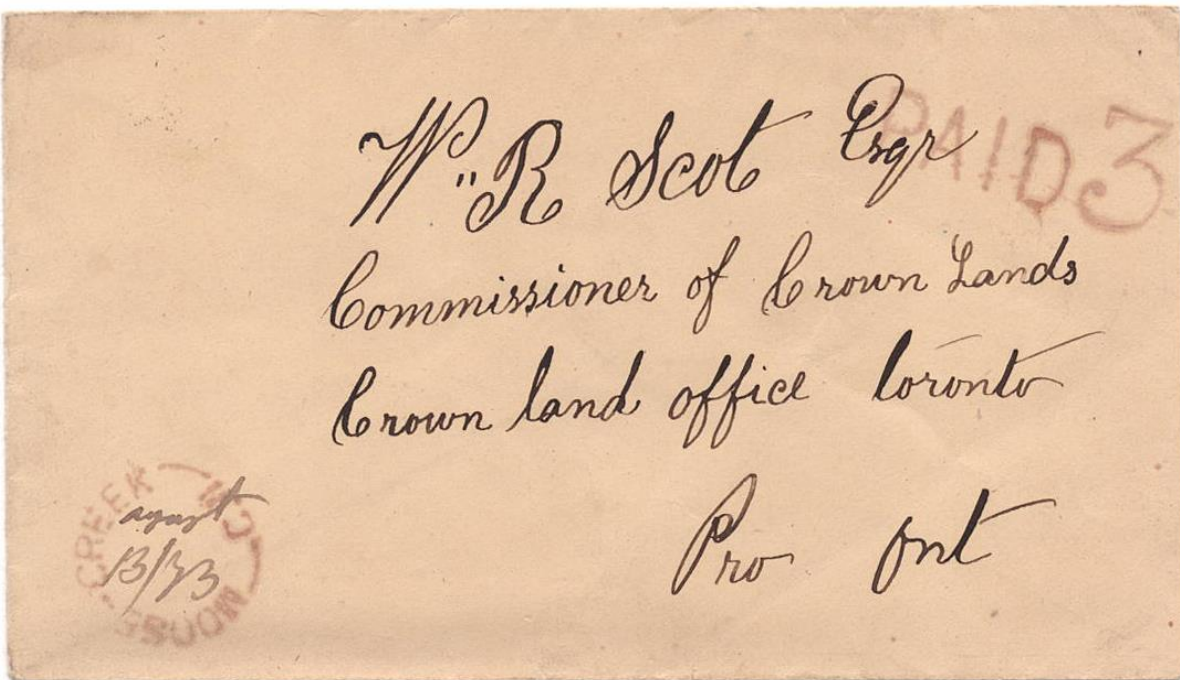 PAID 3
Wm R Scot Esqr
Commissioner of Crown Lands
Crown land office toronto
Pro Ont
MOOSE CREEK
August
13/73